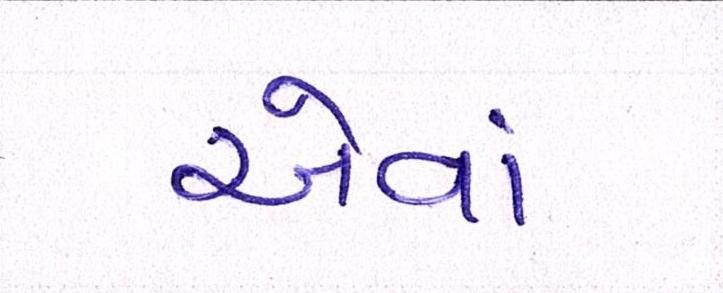 એવાં